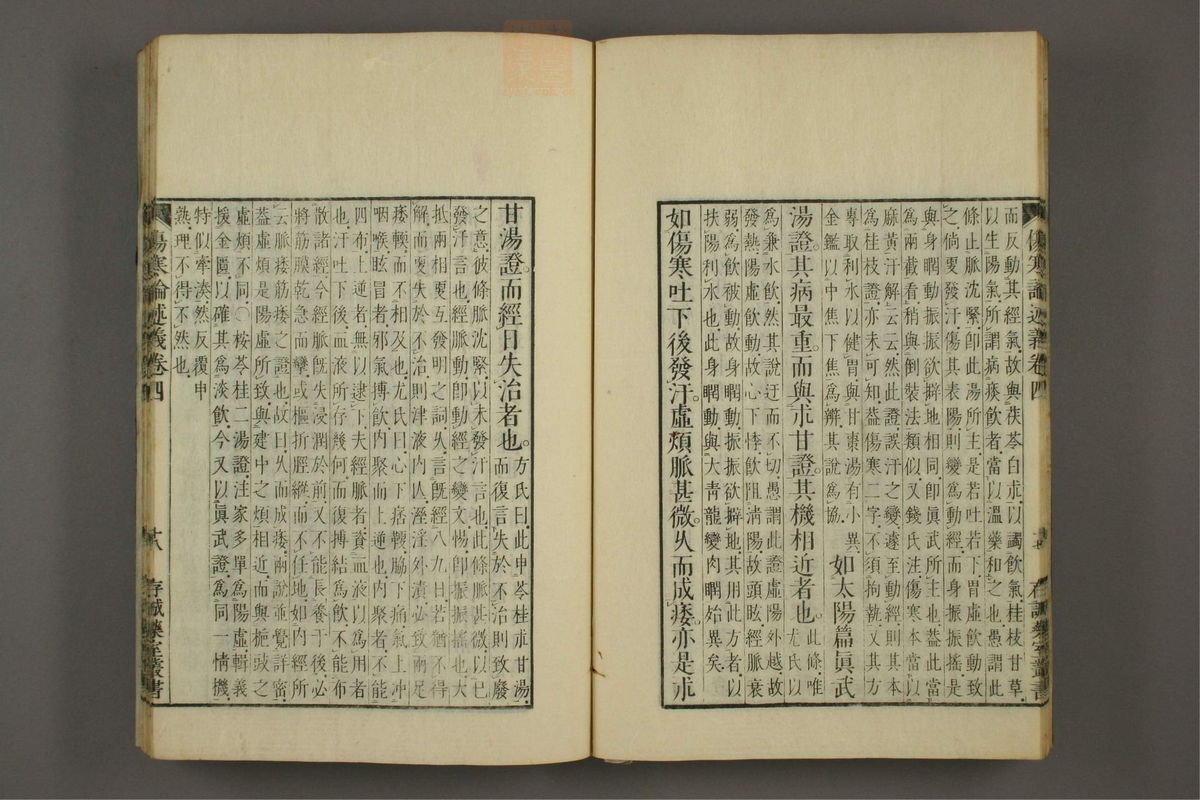 而反動其經氣故與茯苓白朮以蠲飮氣桂枝甘草
以生陽氣所謂病痰飮者當以溫藥和之也愚謂此
條止脈沈緊卽此湯所主是若吐若下胃虛飮動致
之倘更發汗傷其表陽則變爲動經而身振振搖是
與身瞤動振振欲擗地相同卽眞武所主也蓋此當
爲兩截看稍與倒裝法類似又錢氏注傷寒本當以
麻黃汗解云云然此證誤汗之變遽至動經則其本
爲桂枝證亦未可知蓋傷寒二字不須拘執又其方
專取利水以健胃與甘棗湯有小異
金鑑以中焦下焦爲辨其說爲協
如太陽篇眞武
湯證其病最重而與朮甘證其機相近者也
此條唯尤氏以
爲兼水飮然其說迂而不切愚謂此證虛陽外越故
發熱陽虛飮動故心下悸飮阻淸陽故頭眩經脈衰
弱爲飮被動故身瞤動振振欲擗地其用此方者以
扶陽利水也此身瞤動與大靑龍變肉瞤始異矣
如傷寒吐下後發汗虛煩脈甚微久而成痿亦是朮
傷寒論述義卷四
十七
存誠藥室叢書
甘湯證而經日失治者也
方氏曰此申苓桂朮甘湯
而復言失於不治則致廢
之意彼條脈沈緊以未發汗言也此條脈甚微以已
發汗言也經脈動卽動經之變文惕卽振振搖也大
抵兩相更互發明之詞久言旣經八九日若猶不得
解而更失於不治則津液內亾溼淫外漬必致兩足
痿輭而不相及也尤氏曰心下痞鞕脇下痛氣上冲
咽喉眩冒者邪氣搏飮內聚而上逆也內聚者不能
四布上逆者無以逮下夫經脈者資血液以爲用者
也汗吐下後血液所存幾何而復搏結爲飮不能布
散諸經今經脈旣失浸潤於前又不能長養于後必
將筋膜乾急而攣或樞折脛縱而不任地如內經所
云脈痿筋痿之證也故曰久而成痿兩說並覺詳密
蓋虛煩是陽虛所致與建中之煩相近而與梔豉之
虛煩不同〇桉苓桂二湯證注家多單爲陽虛輯義
援金匱以確其爲淡飮今又以眞武證爲同一情機
特似牽湊然反覆申
熟理不得不然也
傷寒論述義卷四
十八
存誠藥室叢書